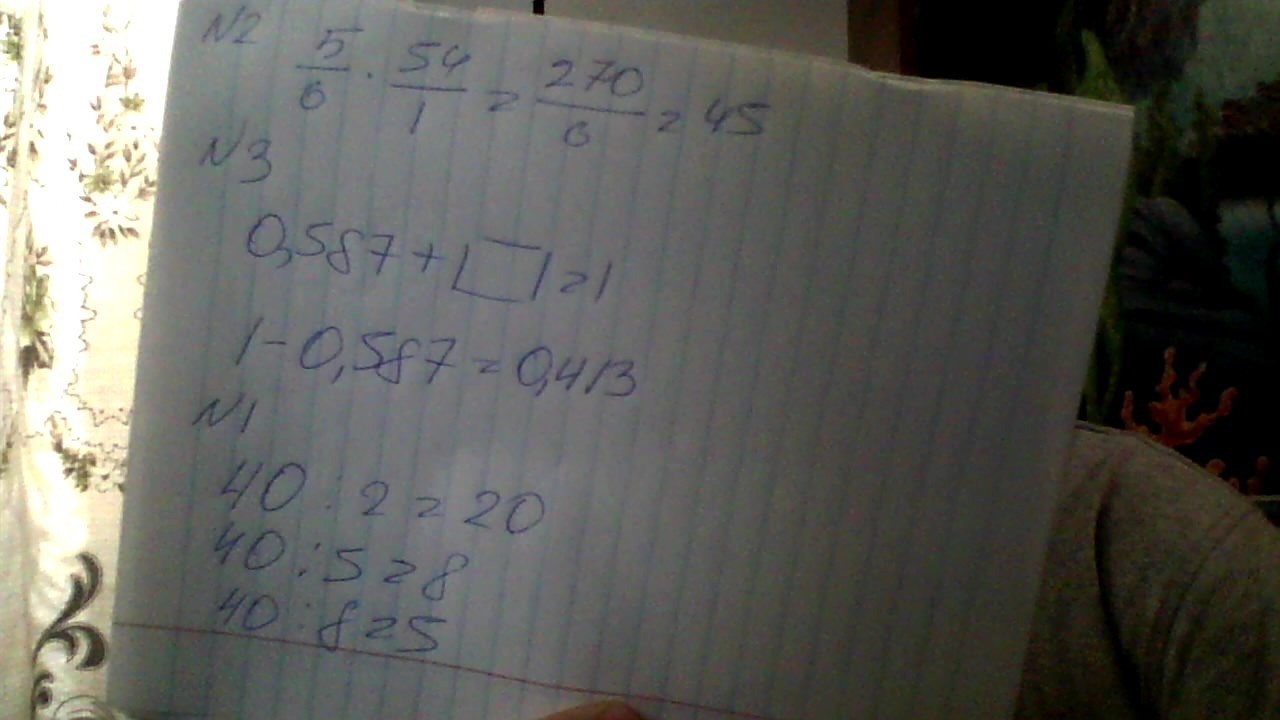 №2
5/6 · 54/1 = 270/6 = 45
№3
0,587 + □ = 1
1 - 0,587 = 0,413
№1
40 : 2 = 20
40 : 5 = 8
40 : 8 = 5